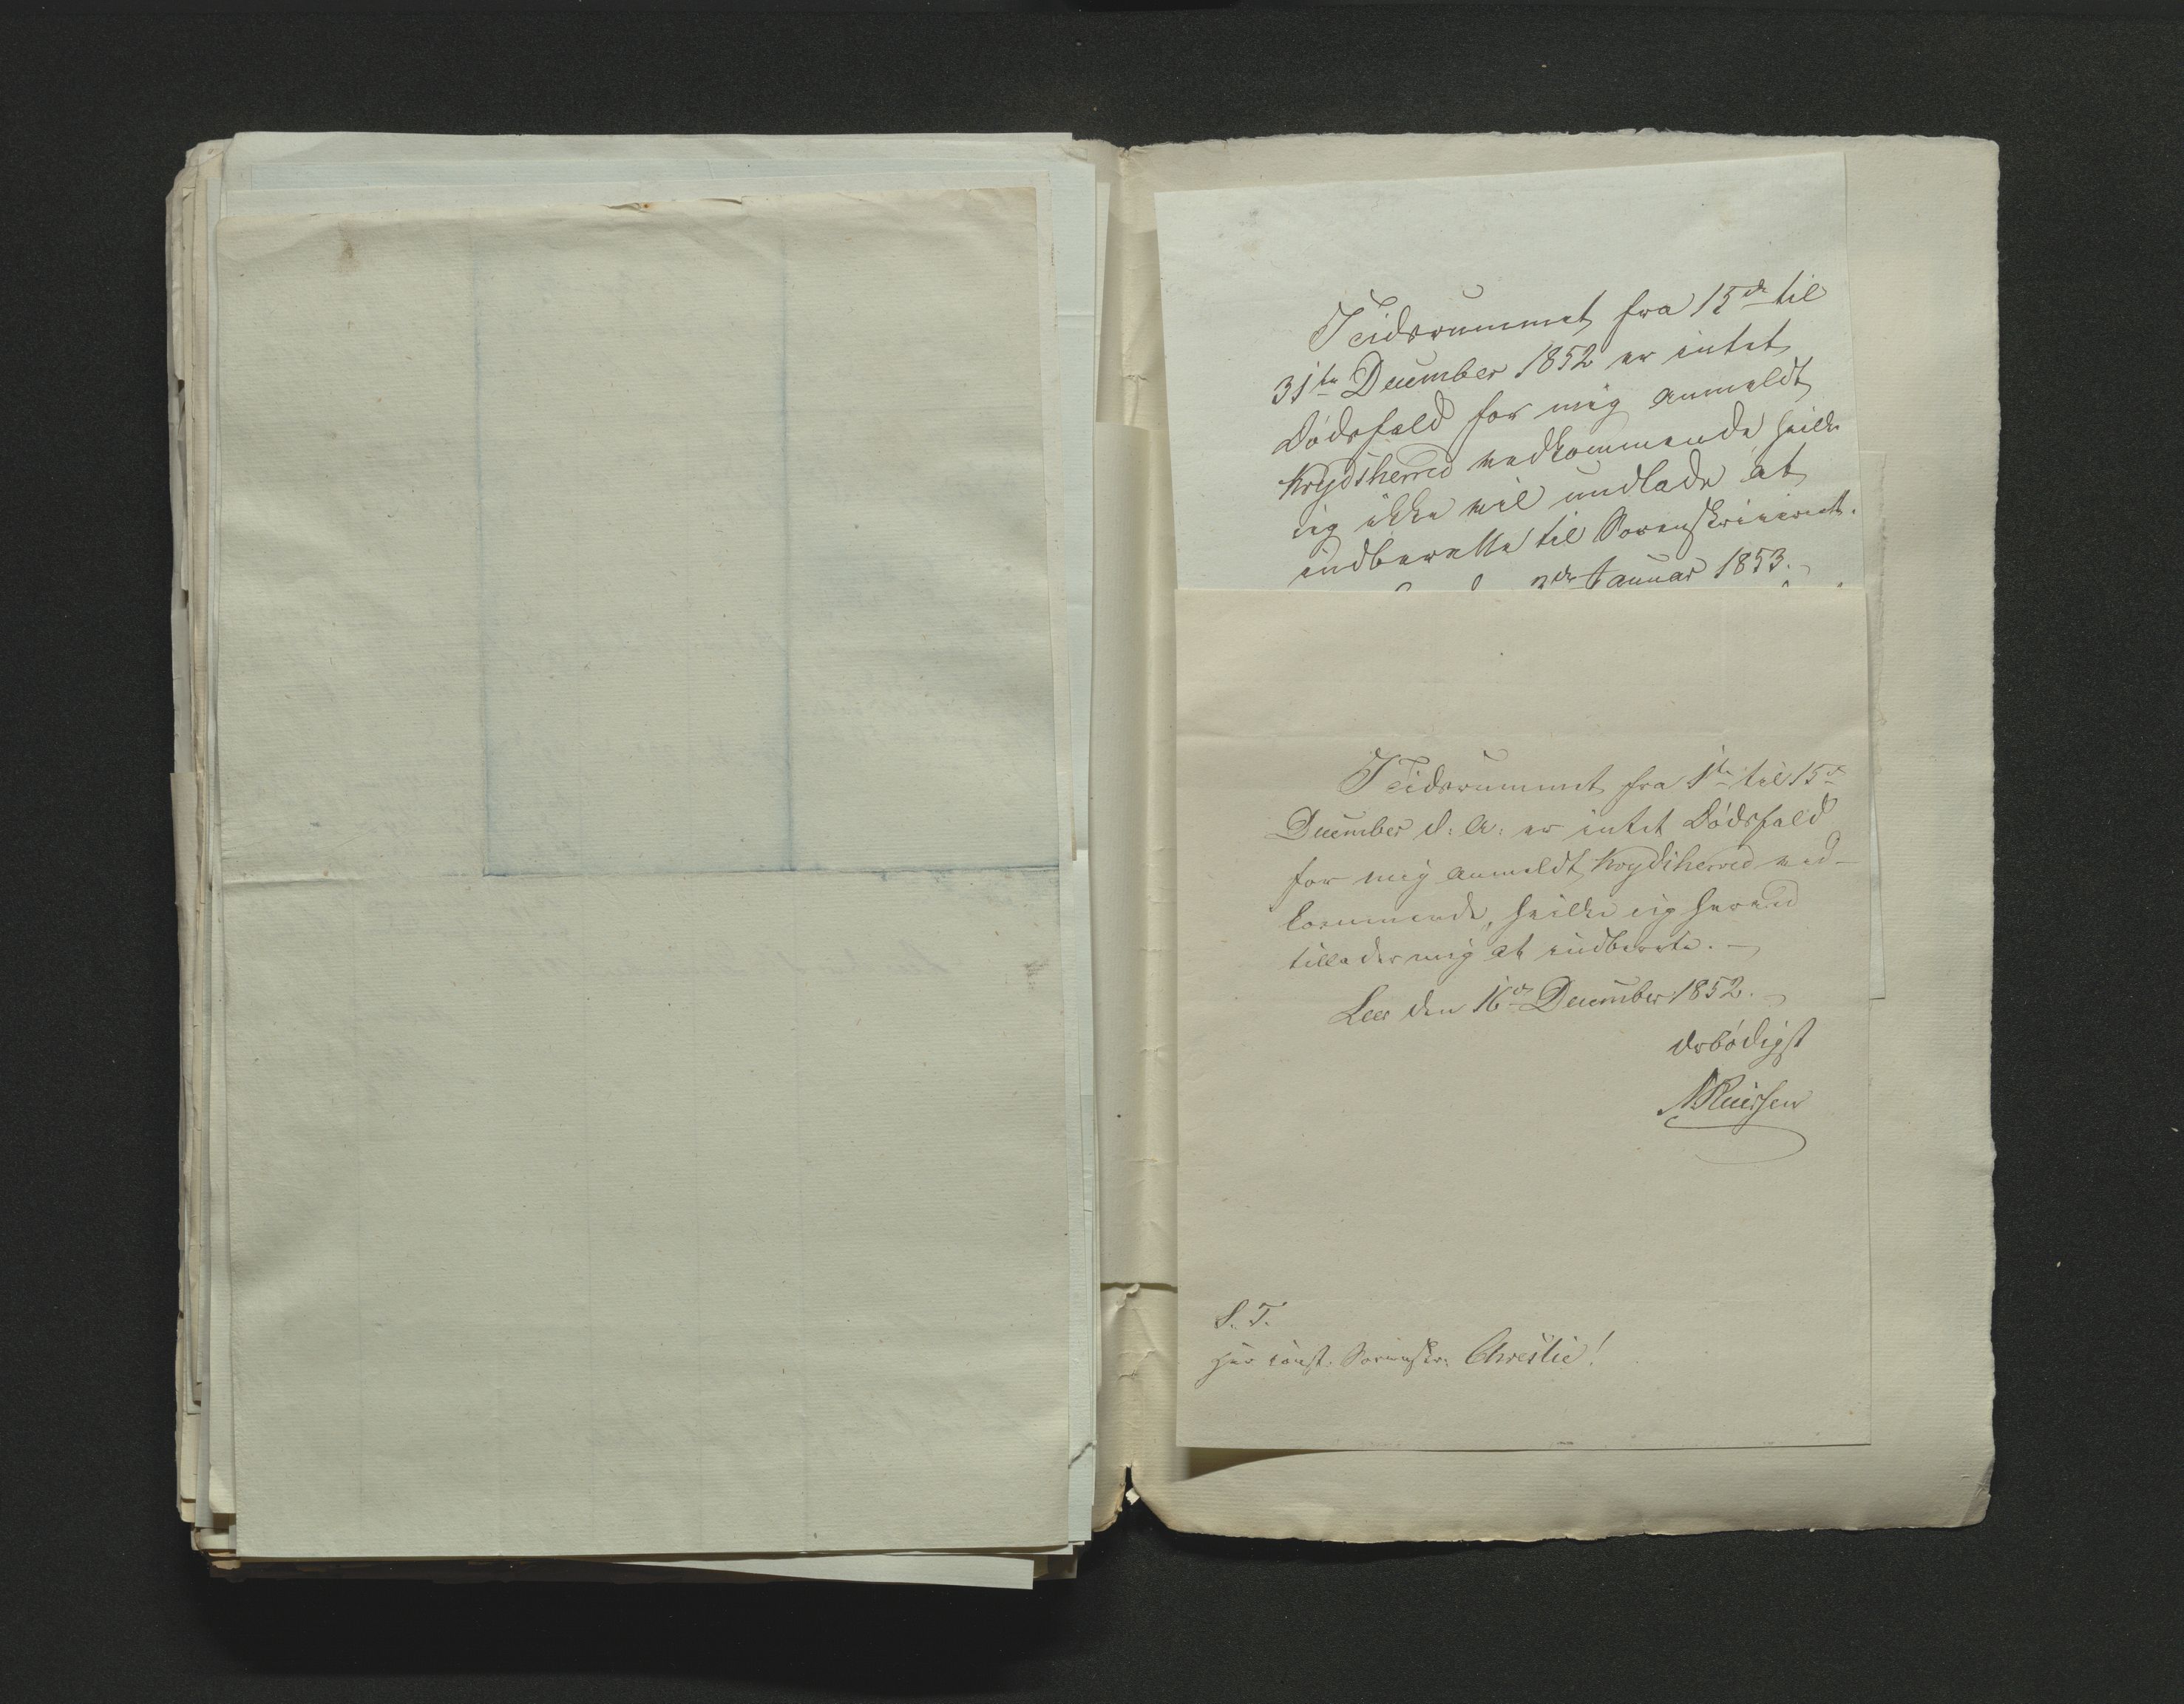 I Tidsrummet fra 15de til
31te December 1852 er intet
Dødsfald for mig anmeldt
Krydsherred vedkommende hvilke
jeg ikke vil undlade at
indberette til Sorenskriveriet.
3de Januar 1853.
I Tidsrummet fra 1te til 15de
December d: A: er intet Dødsfald
for mig anmeldt, Krydsherred ved-
kommende, hvilke jeg herved
tillader mig at indberete. —
Lee den 16de December 1852.
ærbødigst
S. T.
Hr const. Sorenskr: Christie!